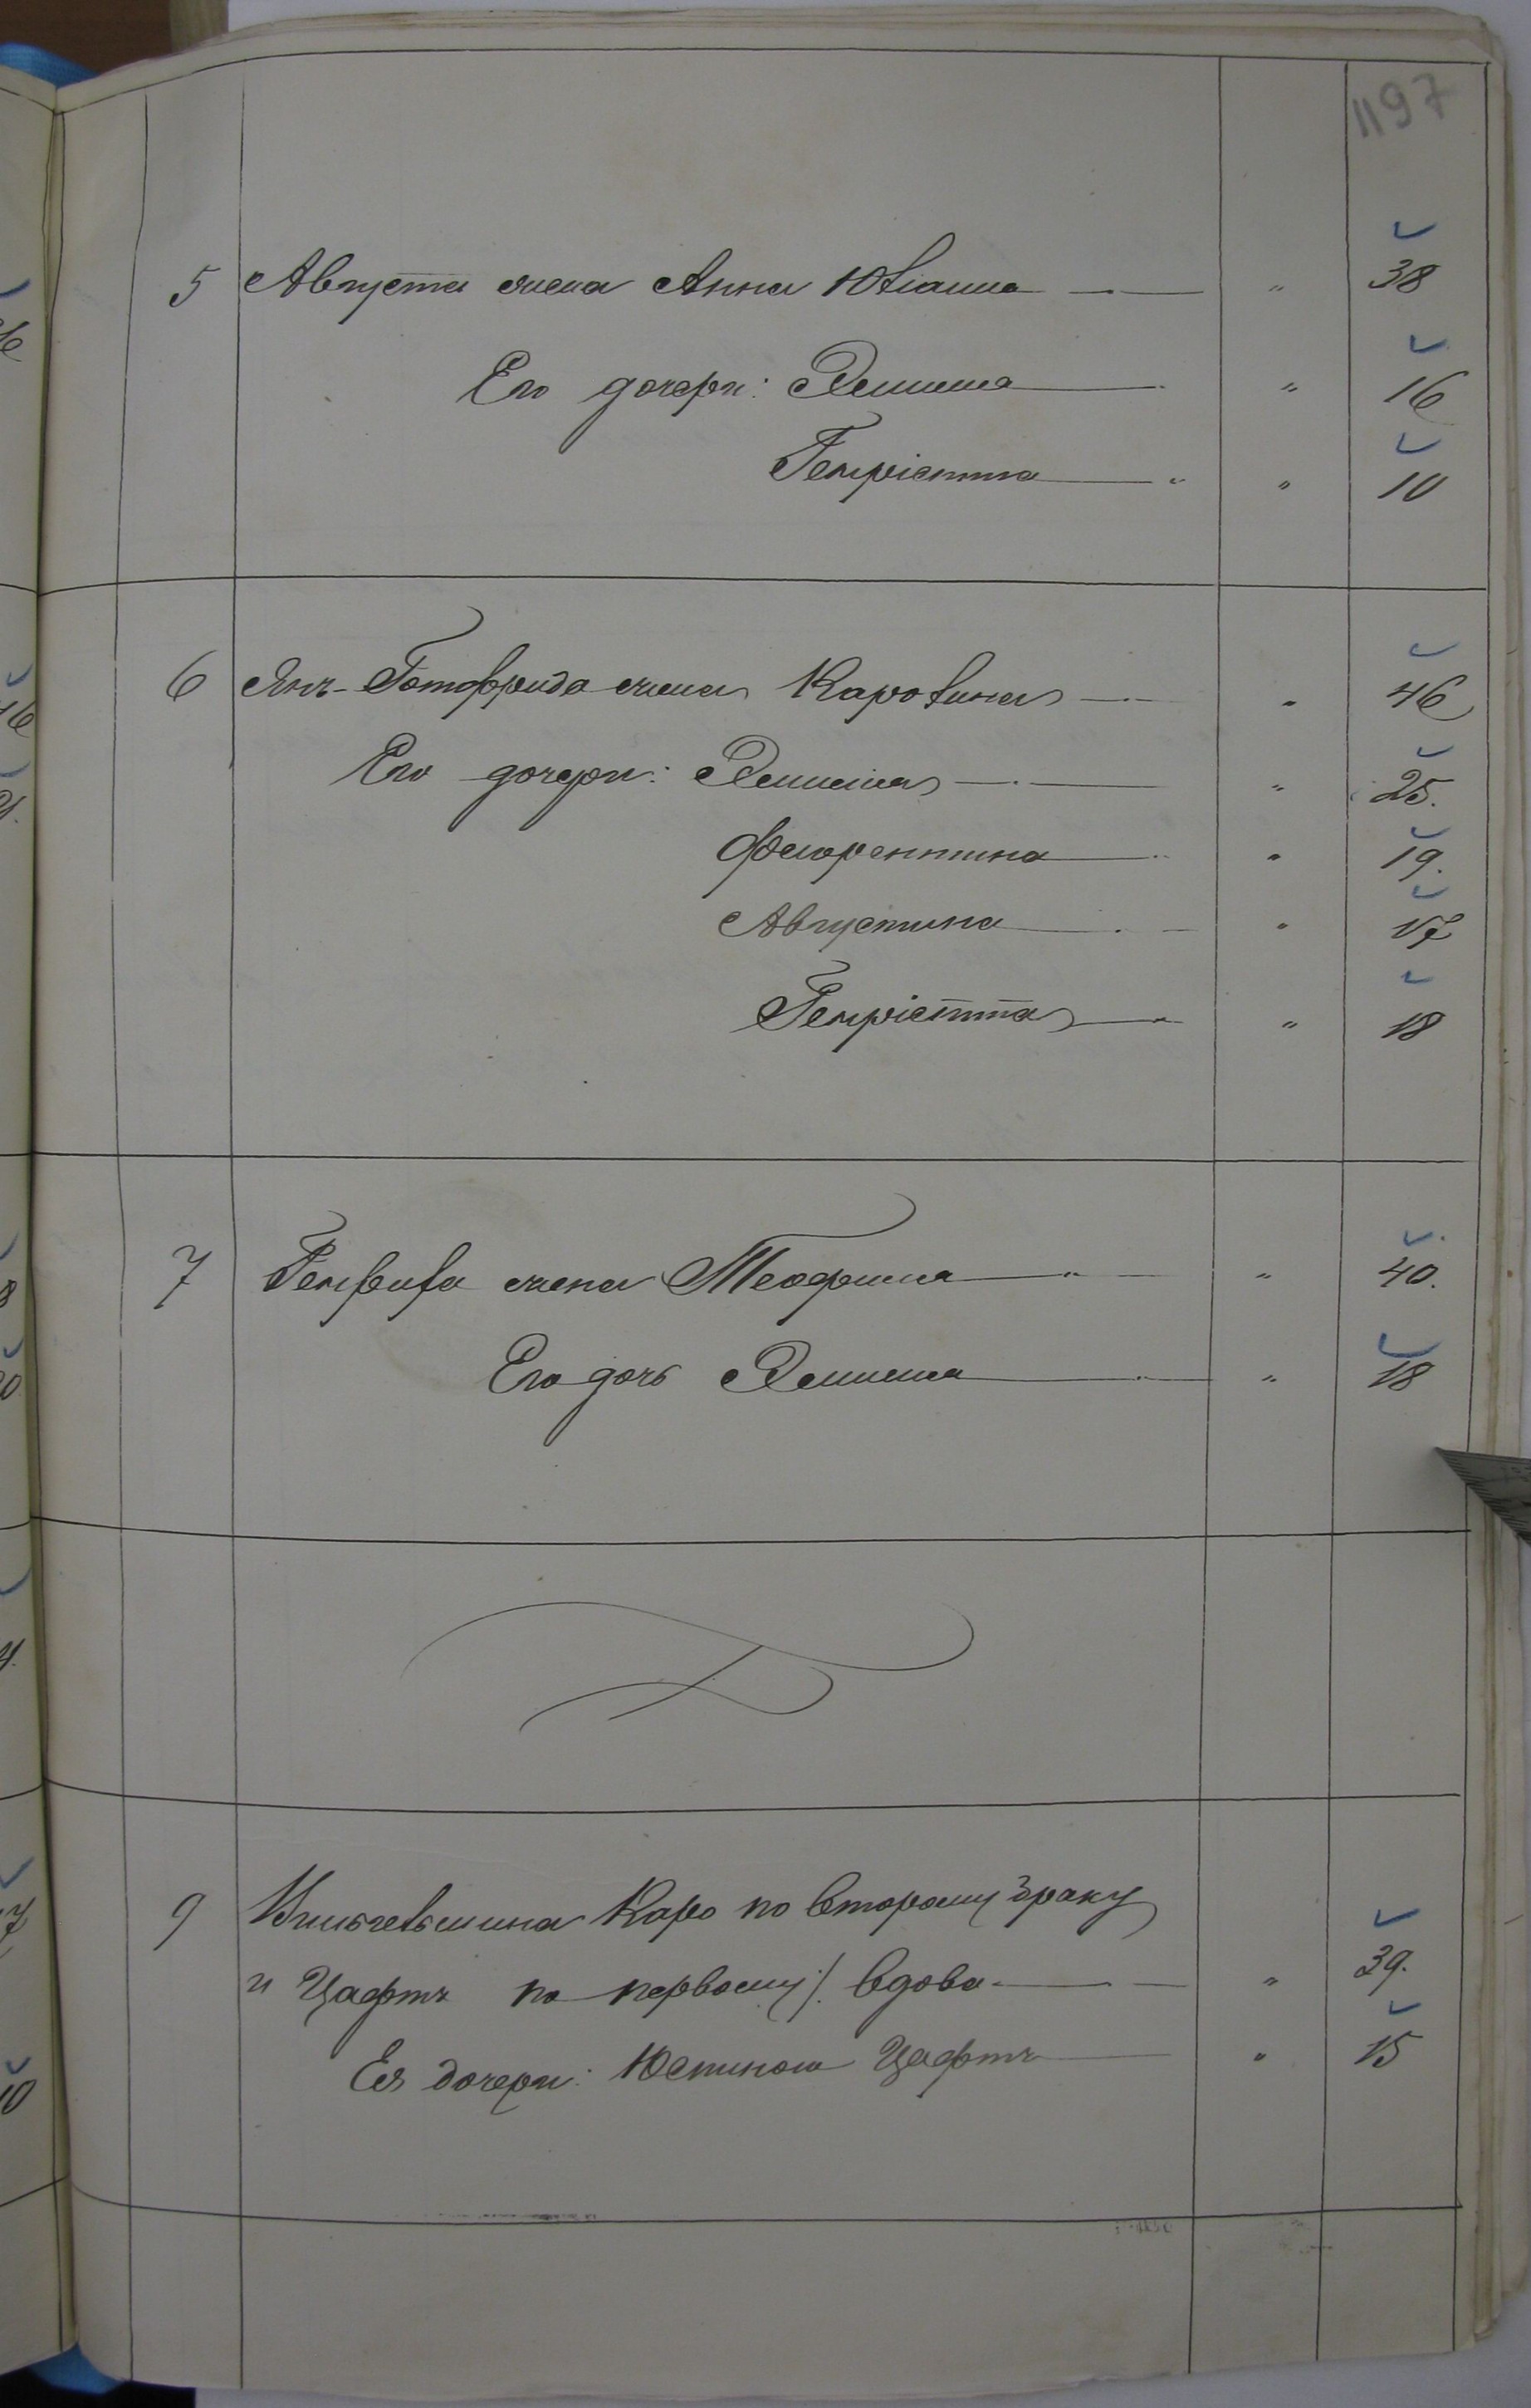 1197
5 Августа жена Анна Юлiанна — " 38
Его дочери: Эмилiя — " 16
Генрiетта — " 10
6 Янъ-Готфрида жена Каролина — " 46
Его дочери: Эмилiя — " 25.
Флорентина — " 19.
Августина — " 17
Генрiетта — " 18
7 жена — " 40.
Его дочь Эмилiя — " 18
9 Вильгельмина Каро по второму браку
и Цафтъ по первому /. вдова — " 39.
Ея дочери: Юстина Цафтъ — " 15